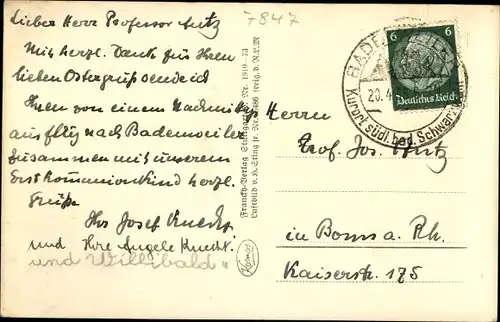 7847
Lieber Herr Professor Lutz
Mit herzl. Dank für Ihren
lieben Ostergruß sende ich
Ihnen von einem Nachmittags
ausflug nach Badenweiler
zusammen mit unserem
Erstkommunionkind herzl.
Grüße
Ihr Josef Knecht
und Ihre Angele Knecht.
und Willibald"
Franckh-Verlag Stuttgart Nr. 1919-73
Luftbild v. H. Sting jr. freig. d. R.L.M
Kosmos
BADENWEILER
20.4
Kurort südl. bad. Schwarzwald
6 6
Deutsches Reich
Herrn
Prof. Jos. Lutz
in Bonn a. Rh.
Kaiserstr. 175